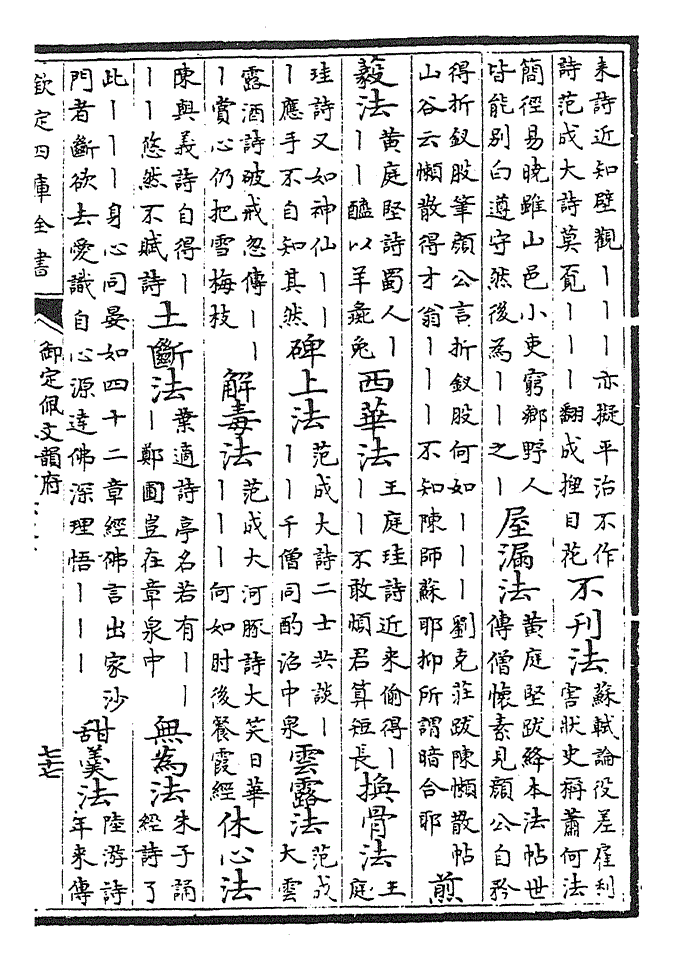 来詩近知壁觀丨丨丨亦擬平治不作
詩范成大詩莫覔丨丨丨翻成揑目花
不刋法
蘇軾論役差雇利
害狀史稱蕭何法
簡徑易曉雖山邑小吏窮鄉野人
皆能别白遵守然後為丨丨之丨
屋漏法
黄庭堅跋絳本法帖世
傳僧懷素見顔公自矜
得折釵股筆顔公言折釵股何如丨丨丨劉克莊跋陳懶散帖
山谷云懶散得才翁丨丨丨不知陳師蘇耶抑所謂暗合耶
煎
藙法
黄庭堅詩蜀人丨
丨丨醢以羊彘兔
西華法
王庭珪詩近来偷得丨
丨丨不敢煩君算短長
換骨法
王
庭
珪詩又如神仙丨丨
丨應手不自知其然
碑上法
范成大詩二士共談丨
丨丨千僧同酌中泉
雲露法
范成
大雲
露酒詩破戒忽傳丨丨
丨賞心仍把雪梅枝
解毒法
范成大河豚詩大笑日華
丨丨丨何如肘後餐霞經
休心法
陳與義詩自得丨
丨丨悠然不賦詩
土斷法
葉適詩亭名若有丨丨
丨鄭圃豈在章泉中
無為法
朱子誦
經詩了
此丨丨丨身心同晏如四十二章經佛言出家沙
門者斷欲去愛識自心源達佛深理悟丨丨丨
甜羮法
陸游詩
年来傳
欽定四庫全書
御定佩文韻府
七七